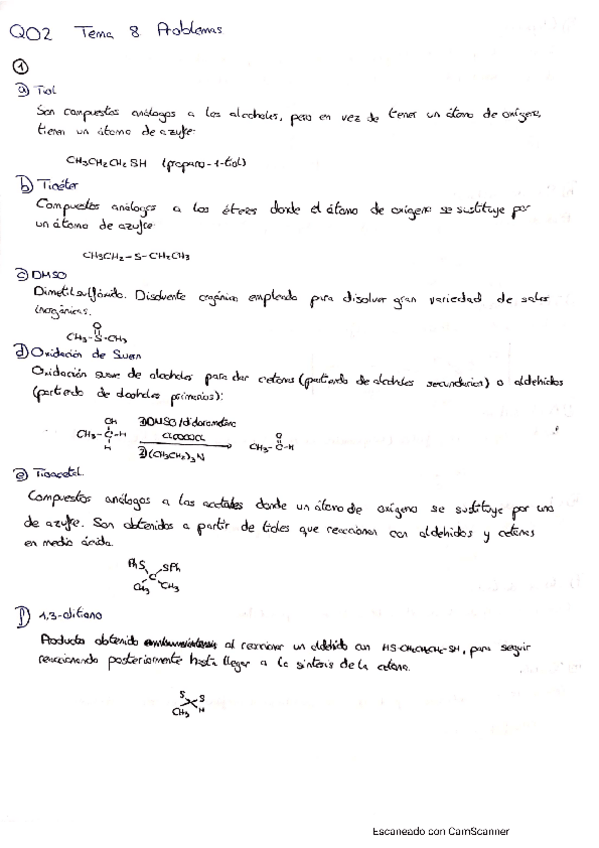 QO2 Tema 8 Problemas
①
a) Tiol
Son compuestos análogos a los alcoholes, pero en vez de tener un átomo de oxígeno,
tienen un átomo de azufre.
CH3CH2CH2SH (propano-1-tiol)
b) Tioéter
Compuestos análogos a los éteres donde el átomo de oxígeno se sustituye por
un átomo de azufre.
CH3CH2-S-CH2CH3
c) DMSO
Dimetilsulfóxido. Disolvente orgánico empleado para disolver gran variedad de sales
inorgánicas.
O
CH3-S-CH3
d) Oxidación de Swern
Oxidación suave de alcoholes para dar cetonas (partiendo de alcoholes secundarios) o aldehídos
(partiendo de alcoholes primarios):
OH 1) DMSO/diclorometano O
CH3-C-H ClCOCOCl CH3-C-H
H 2) (CH3CH2)3N
e) Tioacetal
Compuestos análogos a los acetales donde un átomo de oxígeno se sustituye por uno
de azufre. Son obtenidos a partir de tioles que reaccionan con aldehídos y cetonas
en medio ácido.
PhS SPh
C
CH3 CH3
f) 1,3-ditiano
Producto obtenido al reaccionar un aldehído con HS-CH2CH2CH2-SH, para seguir
reaccionando posteriormente hasta llegar a la síntesis de la cetona.
S S
CH3 H
Escaneado con CamScanner